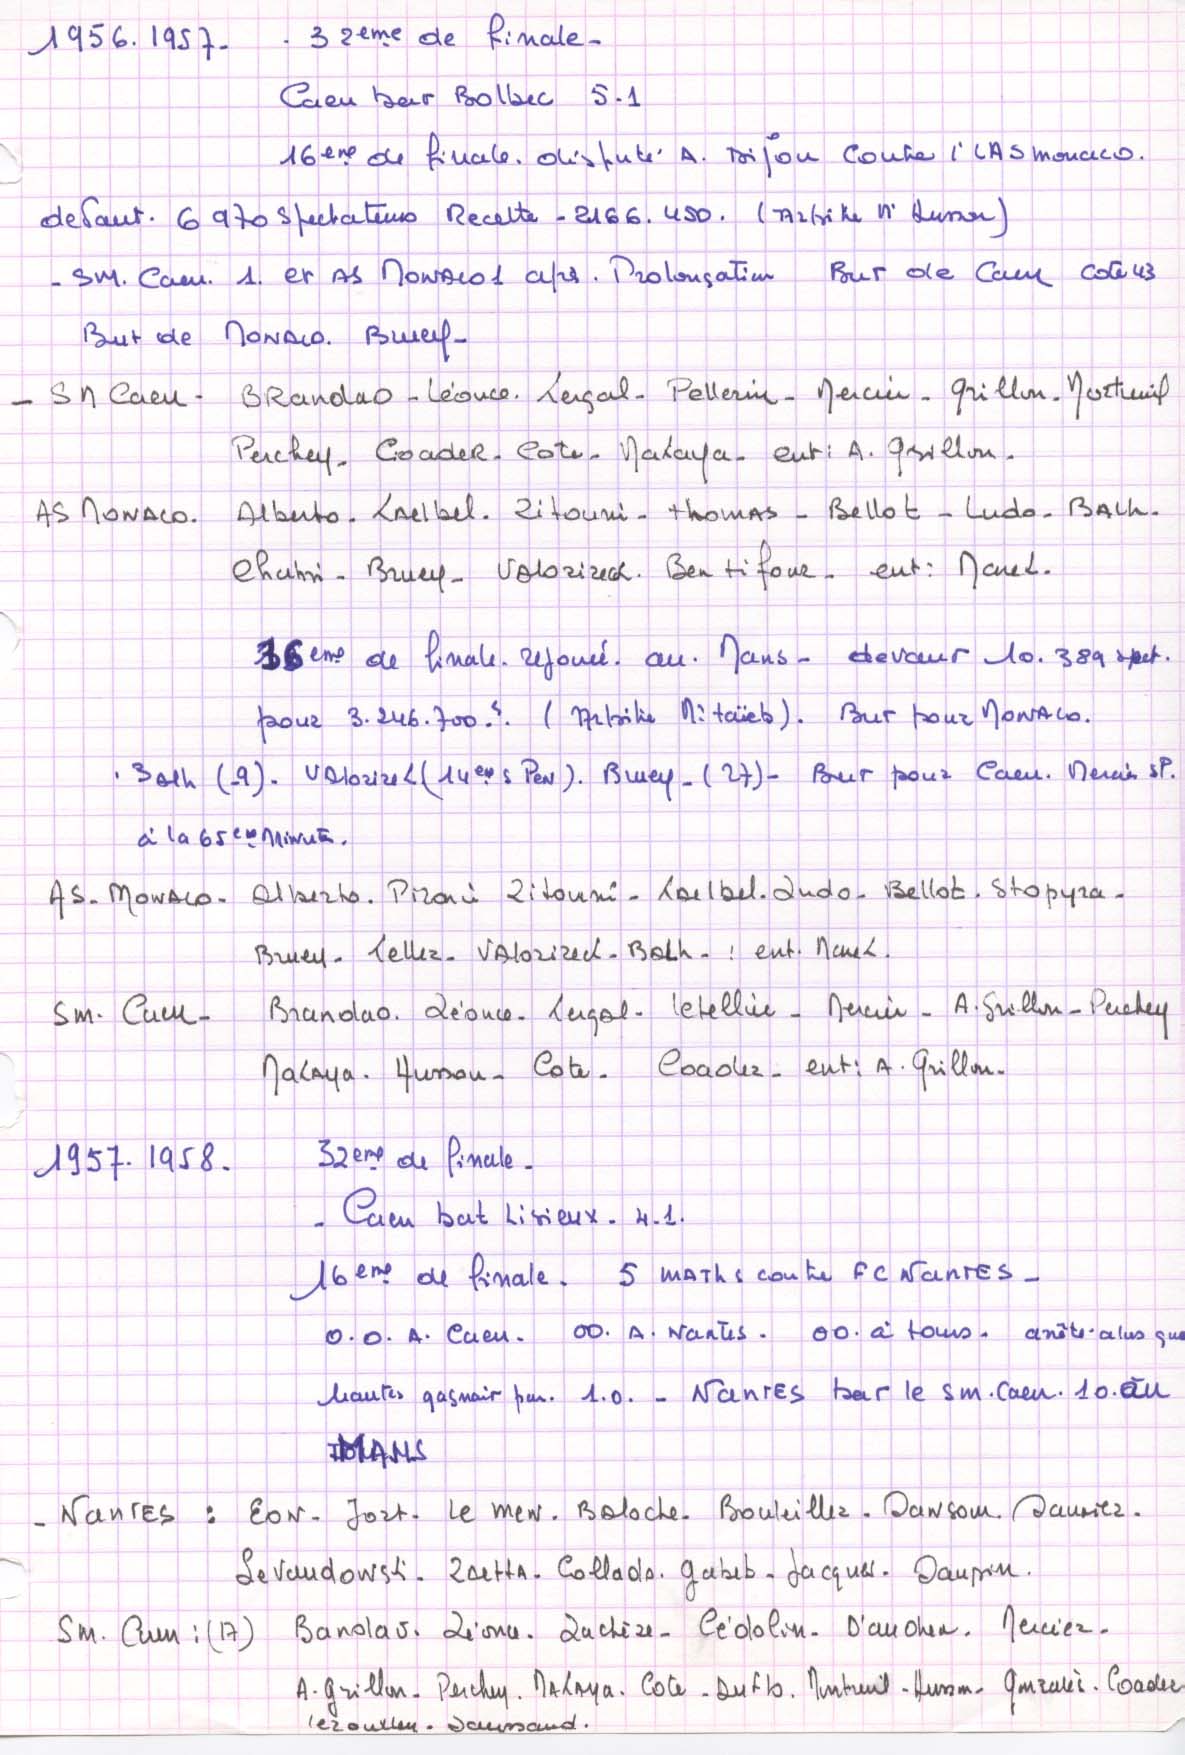 1956.1957. . 32eme de finale-
Caen bat Bolbec 5.1
16eme de finale. disputé A. Dijon contre l'AS monaco.
devant. 6970 spectateurs Recette - 2166.450. (Arbitre Mr Husson)
- SM. Caen. 1. et AS MONACO 1 aps. Prolongation But de Caen cote 43
But de MONACO. Bruey-
- SM Caen - BRandao - Léonce. Legal- Pellerin - Mercier - Grillon - Montreuil
Perchey. CoadeR. Cote- MaKaya- ent: A. Grillon.
AS MONACO. Alberto. Kaelbel. Zitouni - thomas - Bellot - Ludo- BAth.
Chahri - Bruey- VAlorizeck. Ben tifour - ent:
16eme de finale. rejoué. au. Mans - devant 10.389 spect.
pour 3.246.700.f. (Arbitre Mr taïeb). But pour MONACO.
. Bath (9). (14em s PEN). Bruey - (27)- But pour Caen. Mercier SP.
à la 65em Minute.
AS- MONACO. Alberto. Pironi Zitouni - Kaelbel. Ludo- Bellot. Stopyra -
Bruey- tellez- VAlorizeck - Bath - : ent.
Sm. Caen - Brandao. Léonce. Legal- letellier - Mercier - A.Grillon - Perchey
MaKaya. Husson - Cote - Coader- ent: A. Grillon-
1957.1958. 32eme de finale -
- Caen bat Lisieux. 4.1.
16eme de finale. 5 MATHs contre FC NANTES -
0.0. A. Caen. 00. A. Nantes. 00. à tours. arrête alors que
Nantes gagnair par. 1.0. - NANTES bat le Sm.Caen. 10. au
MANS
- NANTES : EON- Jort. Le MEN. Baloche. Bouteiller. Dawson. Dauriez.
Levandowski - Zaetta. Collado. gabeb - Jacques. Daupin.
Sm. Caen : (17) Bandao. Léonce. Lachèze - Cédolin. D'andhen. Mercier -
A. Grillon - Perchey. MAKAya. Cote - Duflo. Montreuil - Husson - Gonzalès. Coader